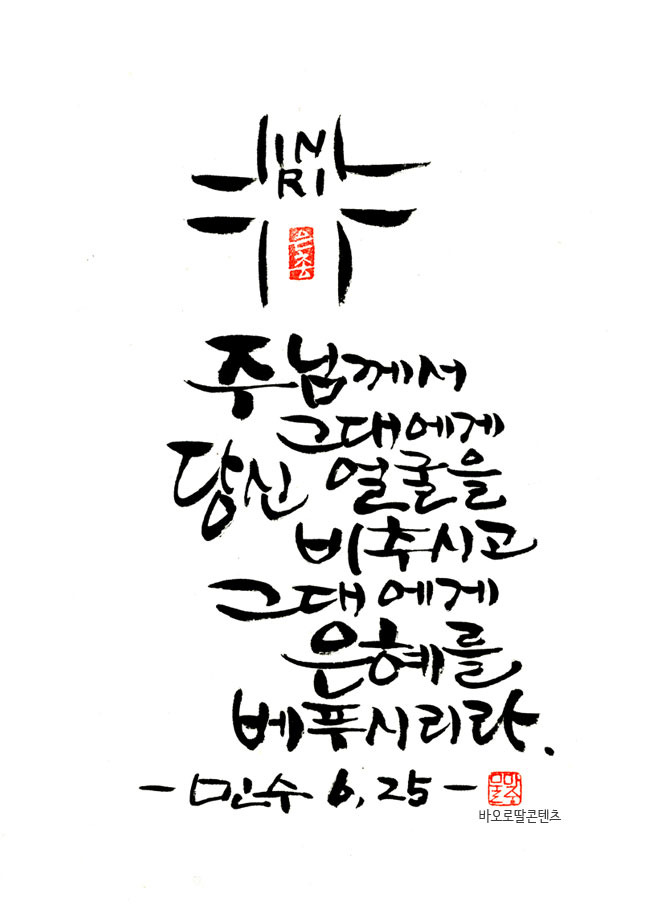 IN
RI
은총
주님께서
그대에게
당신 얼굴을
비추시고
그대에게
은혜를
베푸시리라.
- 민수 6, 25 -
바오로딸콘텐츠